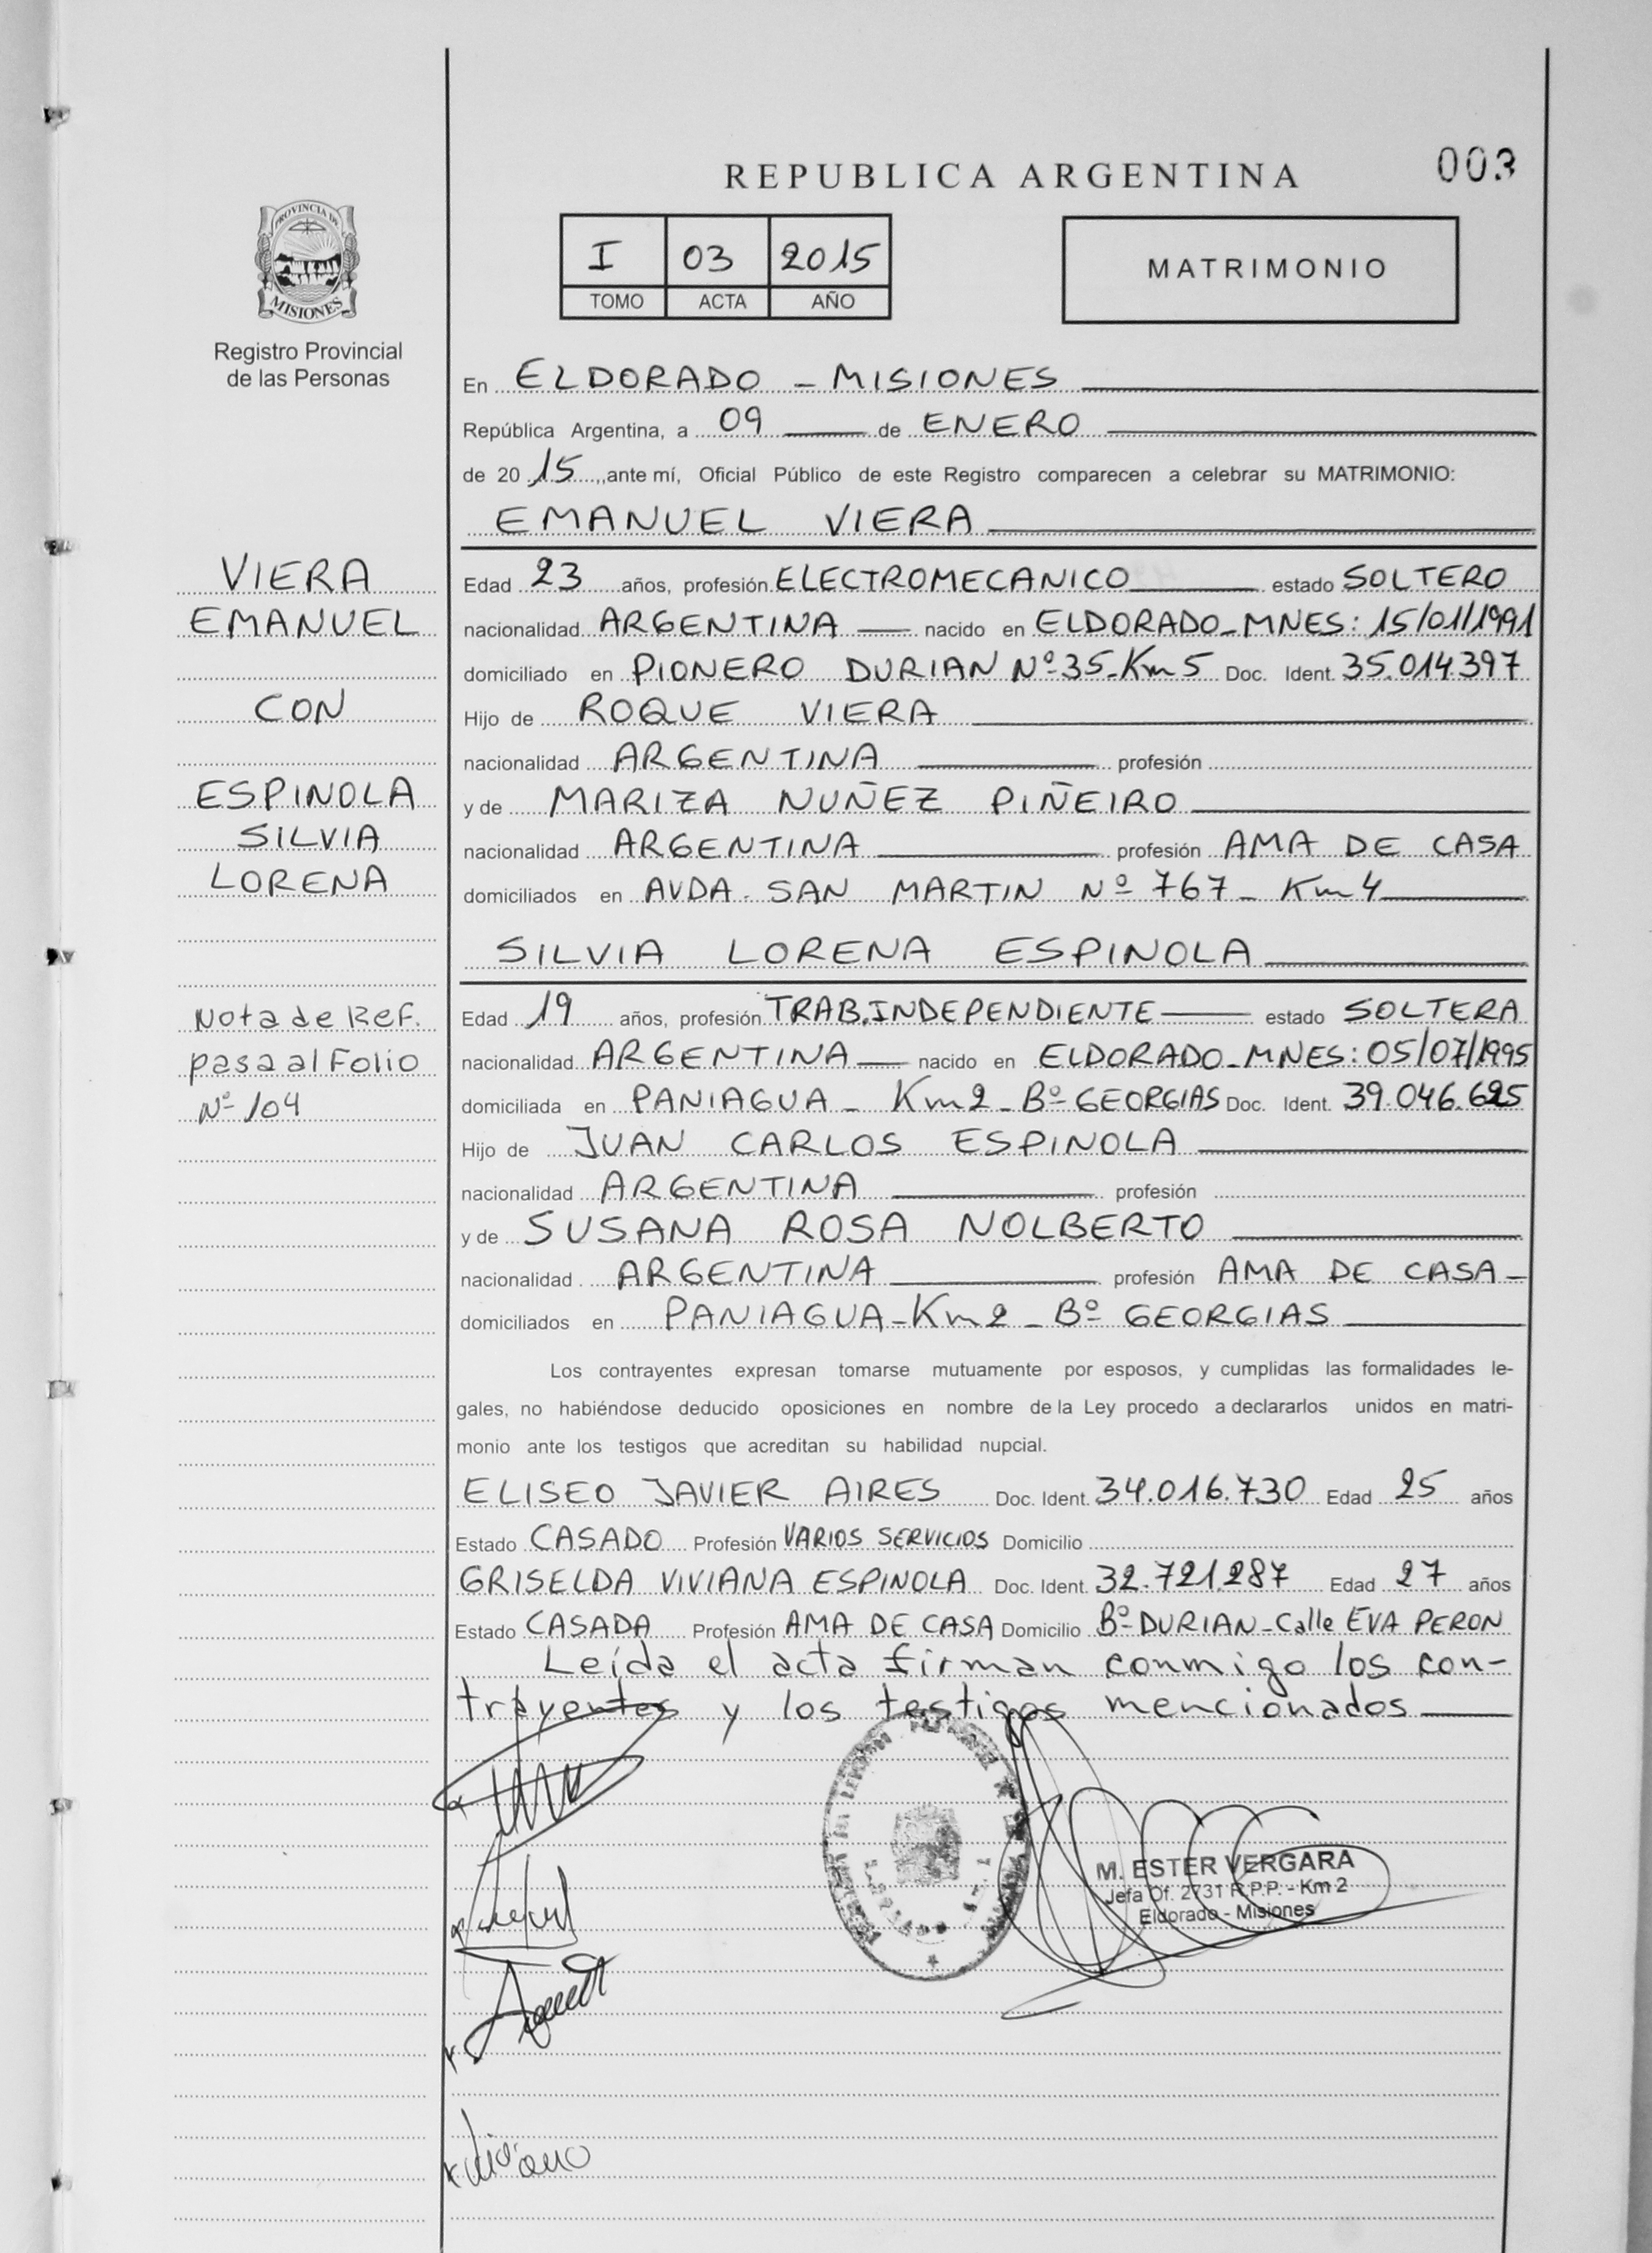 REPUBLICA ARGENTINA
003
PROVINCIA DE
MISIONES
Registro Provincial
de las Personas
I 03 2015
TOMO ACTA AÑO
MATRIMONIO
En ELDORADO - MISIONES
República Argentina, a 09 de ENERO
de 20 15, ante mí, Oficial Público de este Registro comparecen a celebrar su MATRIMONIO:
EMANUEL VIERA
VIERA
EMANUEL
CON
ESPINOLA
SILVIA
LORENA
Nota de Ref.
pasa al Folio
Nº 104
Edad 23 años, profesión ELECTROMECANICO estado SOLTERO
nacionalidad ARGENTINA nacido en ELDORADO-MNES: 15/01/1991
domiciliado en PIONERO DURIAN Nº 35-Km 5 Doc. Ident. 35.014.397
Hijo de ROQUE VIERA
nacionalidad ARGENTINA profesión
y de MARIZA NUÑEZ PIÑEIRO
nacionalidad ARGENTINA profesión AMA DE CASA
domiciliados en AVDA. SAN MARTIN Nº 767 - Km 4
SILVIA LORENA ESPINOLA
Edad 19 años, profesión TRAB.INDEPENDIENTE estado SOLTERA
nacionalidad ARGENTINA nacido en ELDORADO-MNES: 05/07/1995
domiciliada en PANIAGUA - Km 2 - Bº GEORGIAS Doc. Ident. 39.046.625
Hijo de JUAN CARLOS ESPINOLA
nacionalidad ARGENTINA profesión
y de SUSANA ROSA NOLBERTO
nacionalidad ARGENTINA profesión AMA DE CASA -
domiciliados en PANIAGUA-Km 2 - Bº GEORGIAS
Los contrayentes expresan tomarse mutuamente por esposos, y cumplidas las formalidades le-
gales, no habiéndose deducido oposiciones en nombre de la Ley procedo a declararlos unidos en matri-
monio ante los testigos que acreditan su habilidad nupcial.
ELISEO JAVIER AIRES Doc. Ident. 34.016.730 Edad 25 años
Estado CASADO Profesión VARIOS SERVICIOS Domicilio
GRISELDA VIVIANA ESPINOLA Doc. Ident. 32.721.287 Edad 27 años
Estado CASADA Profesión AMA DE CASA Domicilio Bº DURIAN-Calle EVA PERON
Leída el acta firman conmigo los con-
trayentes y los testigos mencionados
M. ESTER VERGARA
Jefa Of. 2731 R.P.P. - Km 2
Eldorado - Misiones